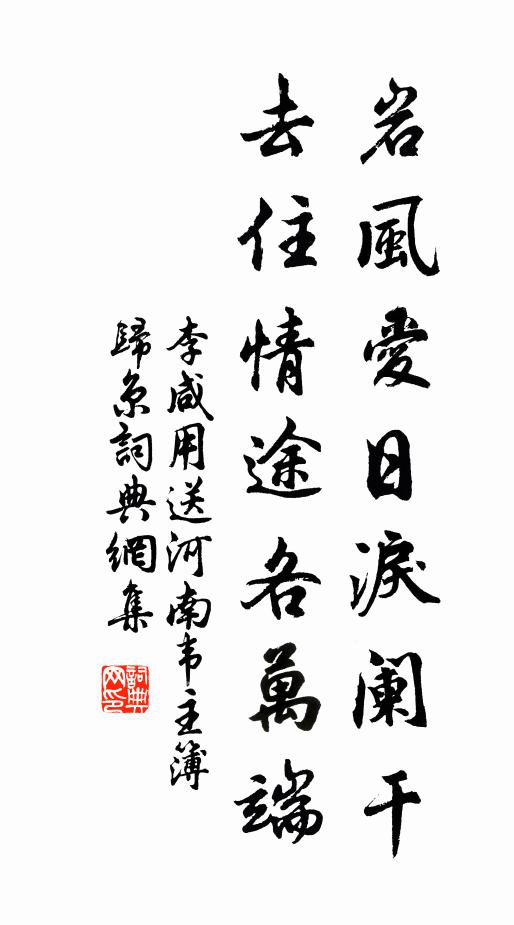 岩風愛日淚阑干
去住情途各萬端
李咸用送河南韦主簿
歸京詞典網集
詞典
网印